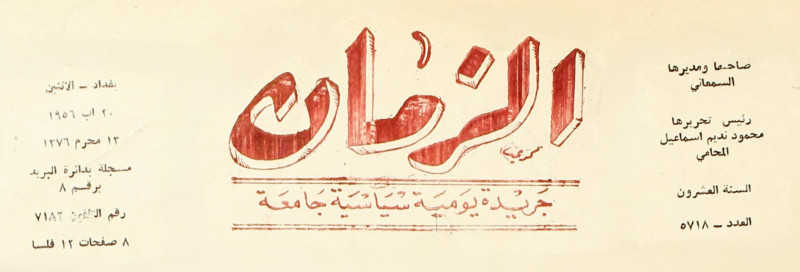 صاحبها ومديرها
السمعاني
رئيس تحريرها
محمود نديم اسماعيل
المحامي
السنة العشرون
العدد – ٥٧١٨
الزمان
جريدة يومية سياسية جامعة
بغداد – الاثنين
٢٠ اب ١٩٥٦
١٣ محرم ١٢٧٦
مسجلة بدائرة البريد
برقم ٨
رقم التلفون ٧١٨٢
٨ صفحات ١٢ فلسا